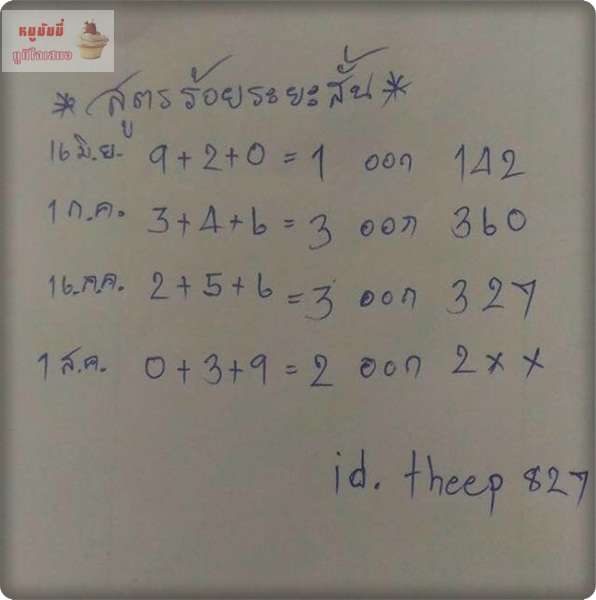 หมูมัมมี่
ภูมิใจเสมอ
* สูตรร้อยระยะสั้น *
16 มิ.ย. 9+2+0 = 1 ออก 142
1 ก.ค. 3+4+6 = 3 ออก 360
16.ก.ค. 2+5+6 = 3 ออก 327
1 ส.ค. 0+3+9 = 2 ออก 2xx
id. theep 827